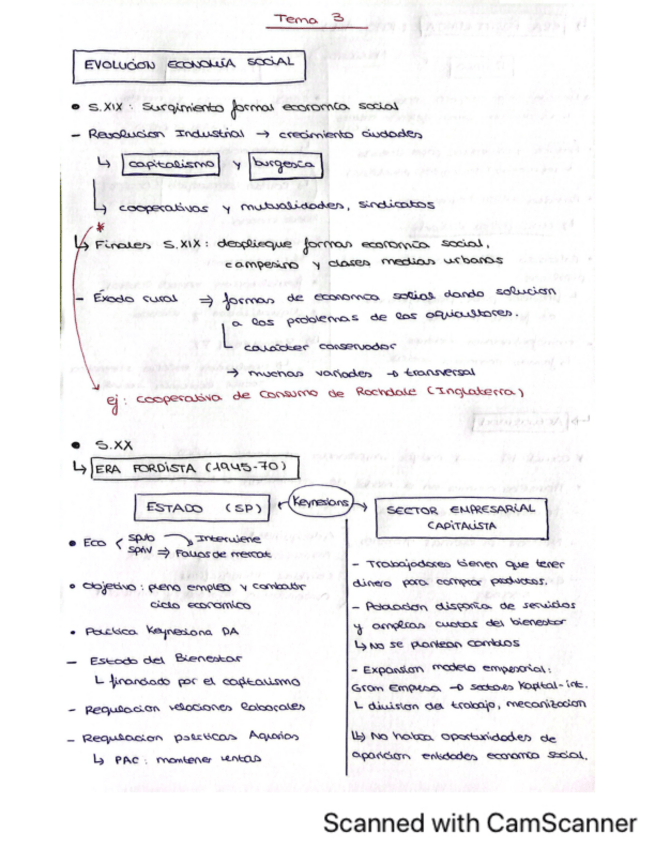 Tema 3
EVOLUCIÓN ECONOMÍA SOCIAL
• S.XIX: Surgimiento formal economía social
- Revolucion Industrial → crecimiento ciudades
↳ capitalismo y burgesía
↳ cooperativas y mutualidades, sindicatos
*
↳ Finales S.XIX: despliegue formas economía social,
campesino y clases medias urbanas
- Éxodo rural ⇒ formas de economía social dando solucion
a los problemas de los agricultores.
↳ carácter conservador
→ muchas variades → transversal
ej: cooperativa de consumo de Rochdale (Inglaterra)
• S.XX
↳ ERA FORDISTA (1945-70)
ESTADO (SP) ← Keynesians → SECTOR EMPRESARIAL
CAPITALISTA
• Eco < spub → Interviene
spriv ⇒ Fallos de mercat
• Objetivo: pleno empleo y combatir
ciclo economico
• Política Keynesiana DA
- Estado del Bienestar
L financiado por el capitalismo
- Regulacion relaciones laborales
- Regulacion políticas Agrarias
↳ PAC: mantener rentas
- Trabajadores tienen que tener
dinero para comprar productos.
- Poblacion disponía de servicios
y amplias cuotas del bienestar
↳ No se plantean cambios
- Expansion modelo empresarial:
Gran Empresa → sectores Kapital-int.
L division del trabajo, mecanizacion
↳ No había oportunidades de
aparicion entidades economia social.
Scanned with CamScanner